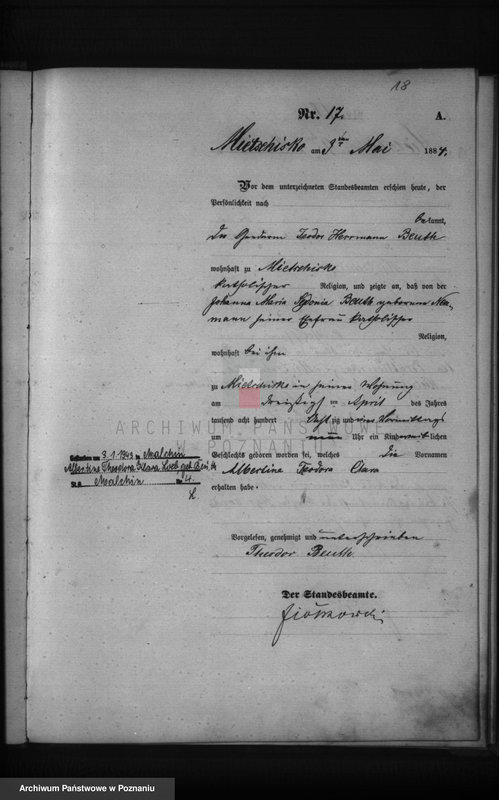 18
Nr. 17. A.
Mietschisko am 3ten Mai 1884.
Vor dem unterzeichneten Standesbeamten erschien heute, der
Persönlichkeit nach
bekannt,
Der Gendarm Teodor Herrmann Beuth
wohnhaft zu Mietschisko
katholischer Religion, und zeigte an, daß von der
Johanna Maria Sydonia Beuth geborenen Neu-
mann seiner Ehefrau katholischer
Religion,
wohnhaft bei ihm
zu Mietschisko in seiner Wohnung
am dreißigsten April des Jahres
tausend acht hundert achtzig und vier Vormittags
um neun Uhr ein Kind weiblichen
Geschlechts geboren worden sei, welches die Vornamen
Albertine Teodora Clara
erhalten habe.
Gestorben am 3.1.1943 in Malchin
Albertine Theodora Clara geb. Beuth
St.A. Malchin Nr. 4.
Vorgelesen, genehmigt und unterschrieben
Theodor Beuth
Der Standesbeamte.
ARCHIWUM PAŃSTWOWE
W POZNANIU
Archiwum Państwowe w Poznaniu